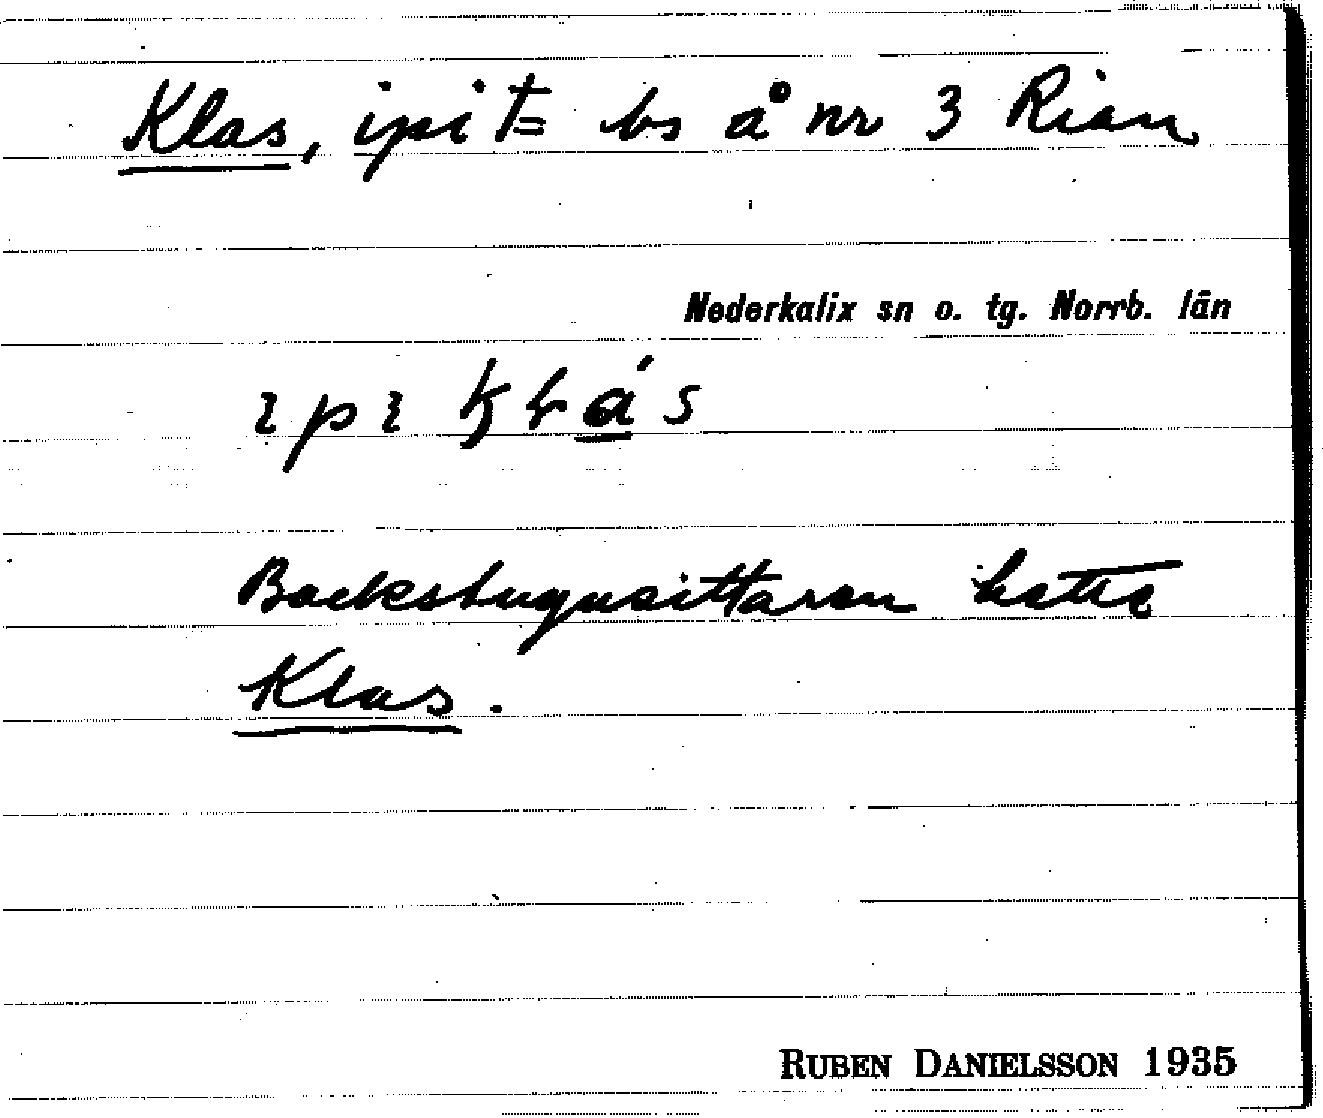 Klas, ipi t= bs å nr 3 Rian
Nederkalix sn o. tg. Norrb. län
ıpı kɫás
Backstugusittaren hette
Klas.
RUBEN DANIELSSON 1935